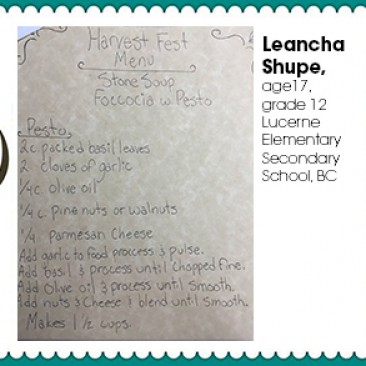 Harvest Fest
Menu
Stone Soup
Foccocia w Pesto
Pesto,
2c. packed basil leaves
2 cloves of garlic
1/4c olive oil
1/4 c. pine nuts or walnuts
1/4 parmesan cheese
Add garlic to food proccess & pulse.
Add basil & process until chopped fine.
Add Olive oil & process until smooth.
Add nuts & Cheese & blend until smooth.
Makes 1 1/2 cups
Leancha
Shupe,
age17,
grade 12
Lucerne
Elementary
Secondary
School, BC